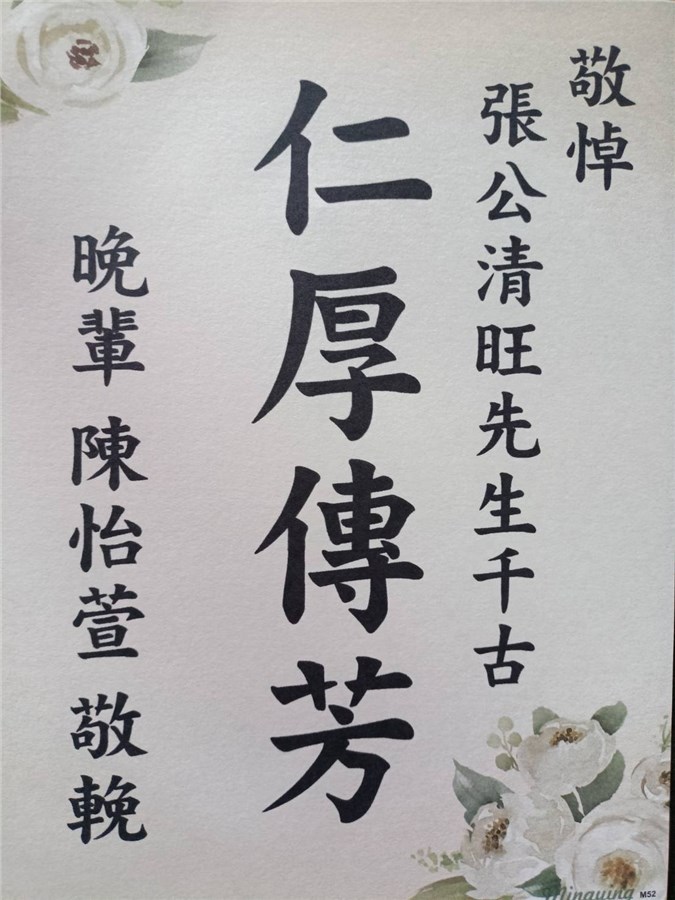 敬悼
張公清旺先生千古
仁厚傳芳
晚輩 陳怡萱 敬輓
M52